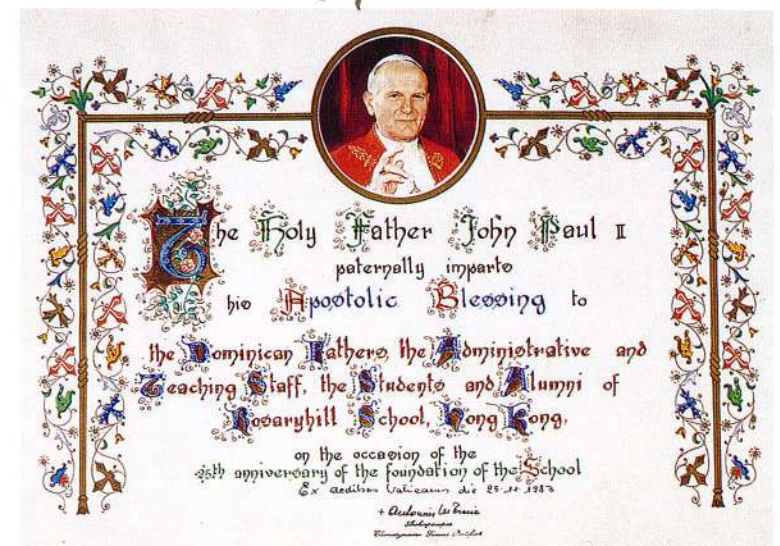 The Holy Father John Paul II
paternally imparts
his Apostolic Blessing to
the Dominican Fathers, the Administrative and
Teaching Staff, the Students and Alumni of
Rosaryhill School, Hong Kong,
on the occasion of the
25th anniversary of the foundation of the School
Ex aedibus Vaticanis die 25-11-1983
+